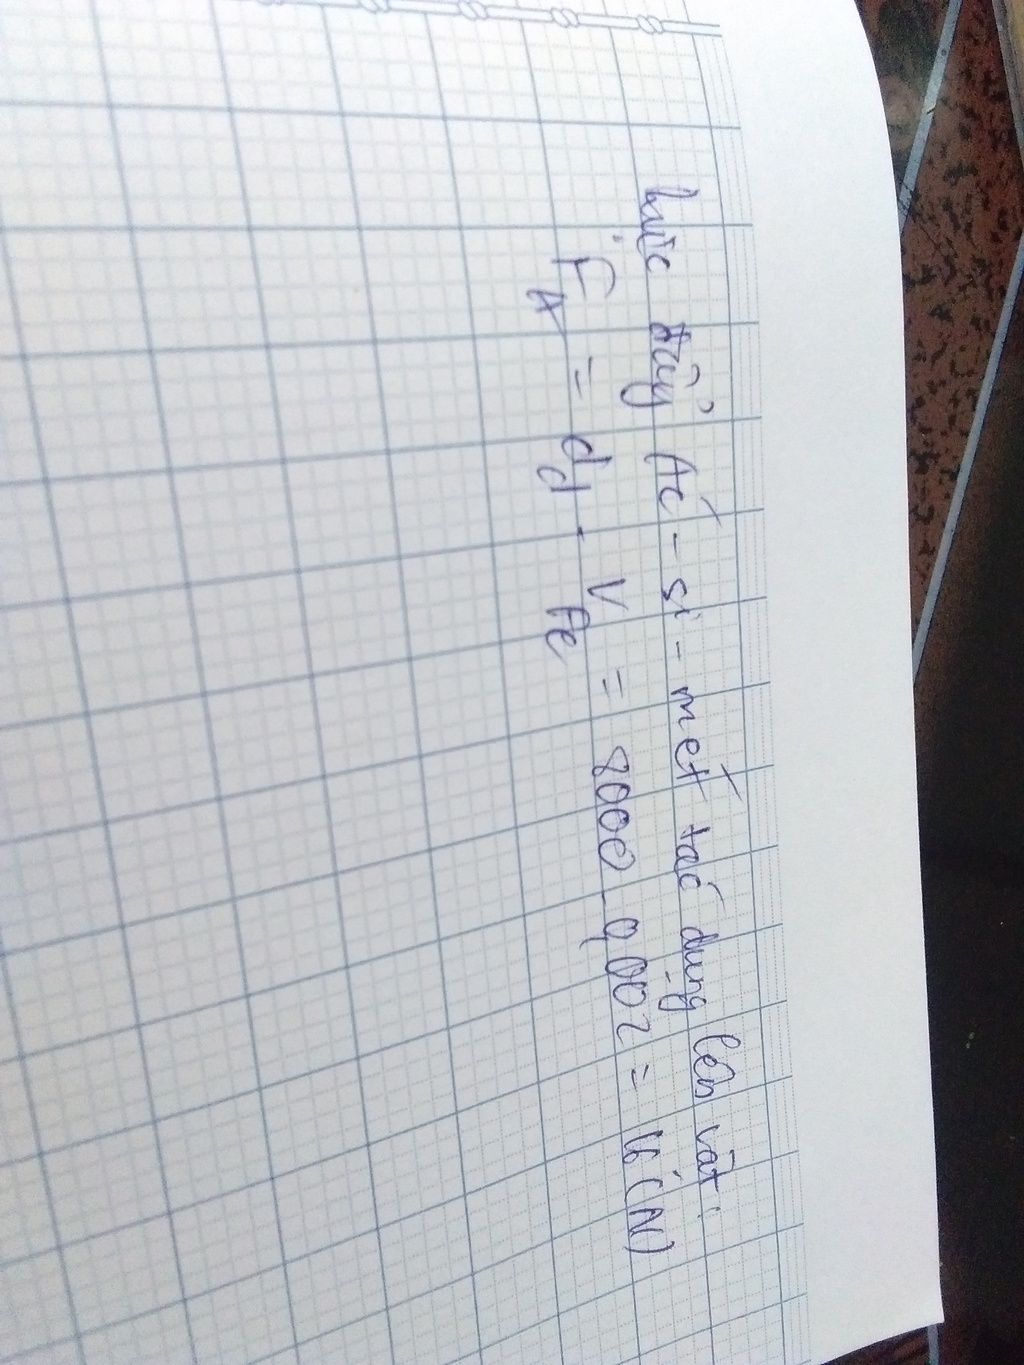 Lực đẩy Ác-si-mét tác dụng lên vật:
F_A = d_d . V_Fe = 8000 . 0,002 = 16 (N)